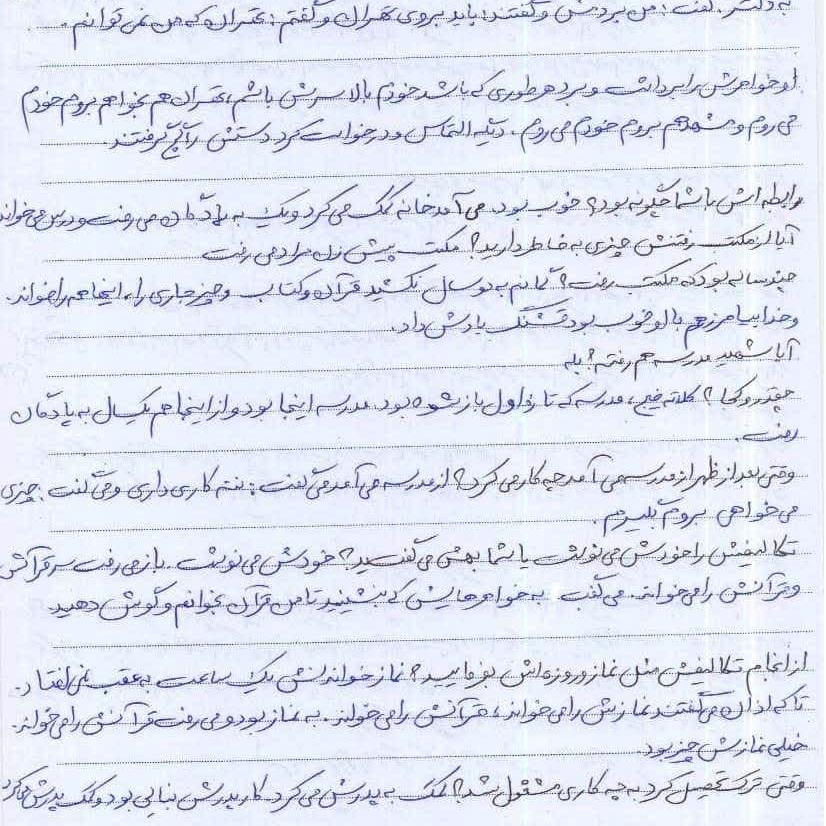 به دکتر. گفت: من بردمش و گفتند: باید بروی تهران و گفتم: تهران که من نمی توانم.
او خواهرش را برداشت و برد هر طوری که باشد خودم بالا سرش باشم، تهران هم بخواهم بروم خودم
می روم و مشهد هم بروم خودم می روم. دیگه التماس و درخواست کرد. دستش را گچ گرفتند.
رابطه اش با شما چگونه بود؟ خوب بود. می آمد خانه کمک می کرد و یک به می رفت و درس می خواند
آیا از مکتب رفتنش چیزی به خاطر دارید؟ مکتب پیش زن مراد می رفت
چند ساله بود که مکتب رفت؟ گمانم به نو سال نکشید قرآن و کتاب و چیز جاری را، اینجا همه را خواند.
و خدا بیامرز هم با او خوب بود قشنگ یادش داد.
آیا شهید مدرسه هم رفته؟ بله
چقدر و کجا؟ کلاته خیج، مدرسه که تازه اول باز شده بود. مدرسه اینجا بود و از اینجا هم یکسال به
رفت.
وقتی بعد از ظهر از مدرسه می آمد چه کار می کرد؟ از مدرسه می آمد می گفت: ننه کاری داری و می گفت: چیزی
می خواهی بروم بگیرم.
تکالیفش را خودش می نوشت یا شما بهش می گفتید؟ خودش می نوشت. باز می رفت سر قرآنش
و قرآنش را می خواند. می گفت به خواهرهایش که بنشینید تا من قرآن بخوانم و گوش دهید.
از انجام تکالیفش مثل نماز و روزه اش بفرمایید؟ نماز خواندنش یک ساعت به عقب نمی افتاد.
تا که اذان می گفتند نمازش را می خواند، قرآنش را می خواند. به نماز بود و می رفت قرآنش را می خواند.
خیلی نمازش چیز بود.
وقتی ترک تحصیل کرد به چه کاری مشغول شد؟ کمک به پدرش می کرد کار پدرش بنایی بود و کمک پدرش می کرد